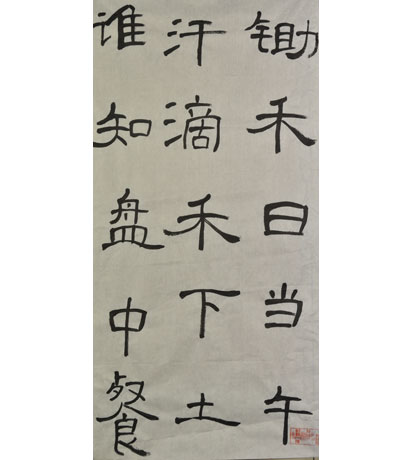 锄禾日当午
汗滴禾下土
谁知盘中餐